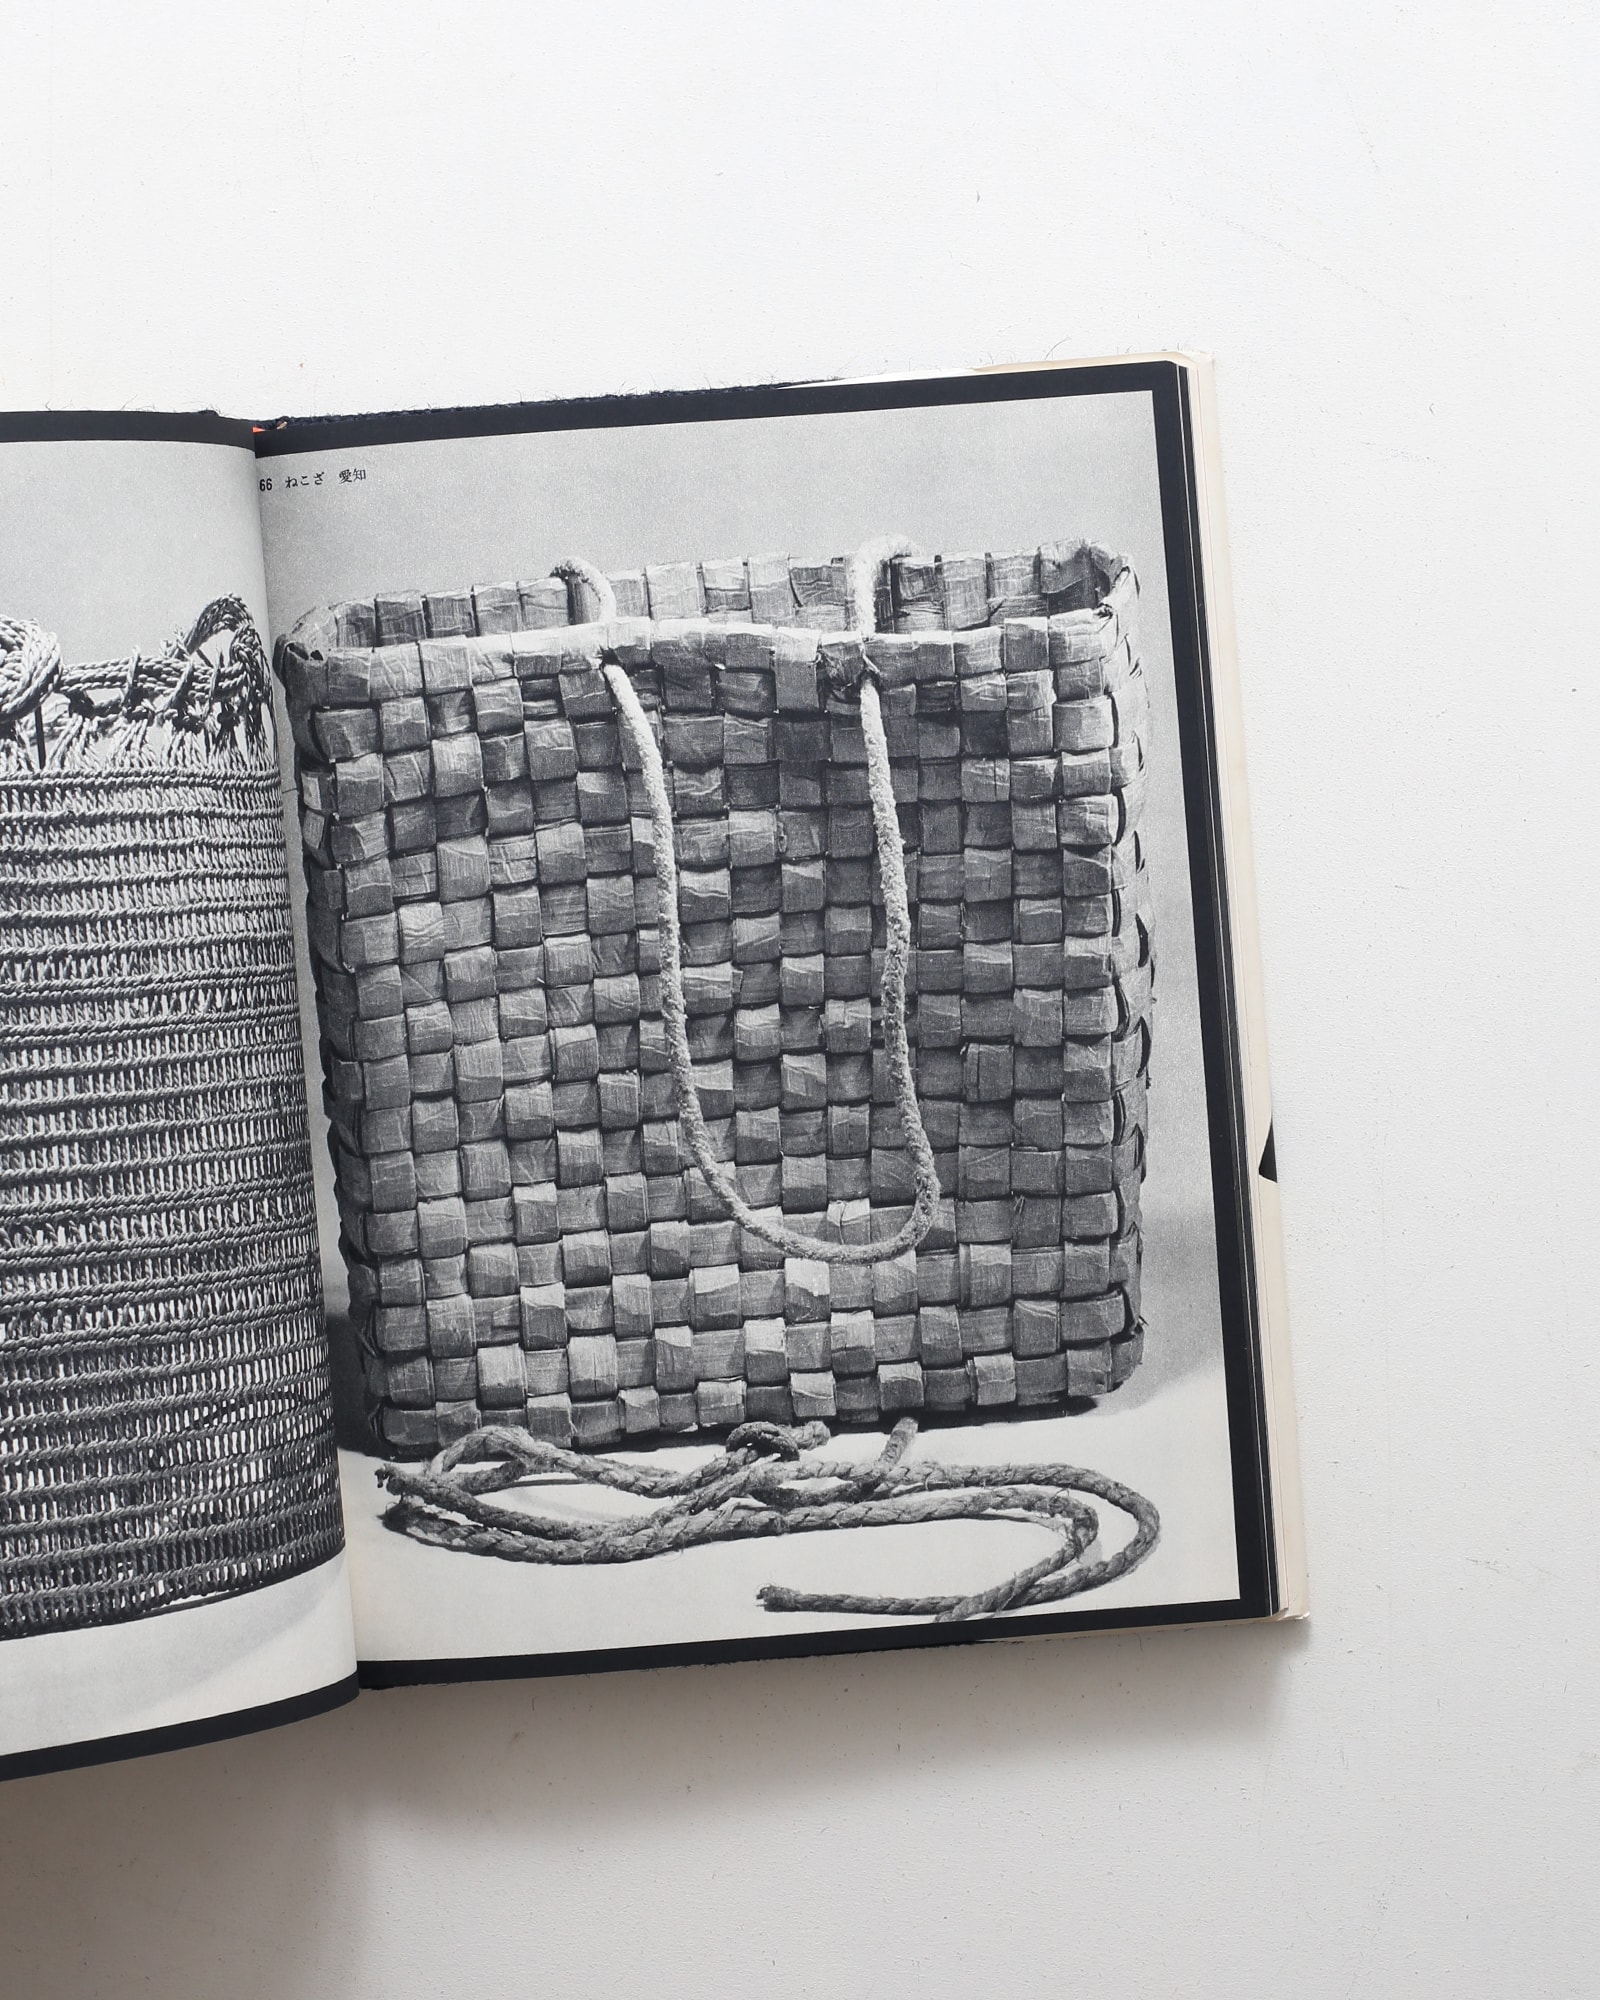 66 ねこざ 愛知